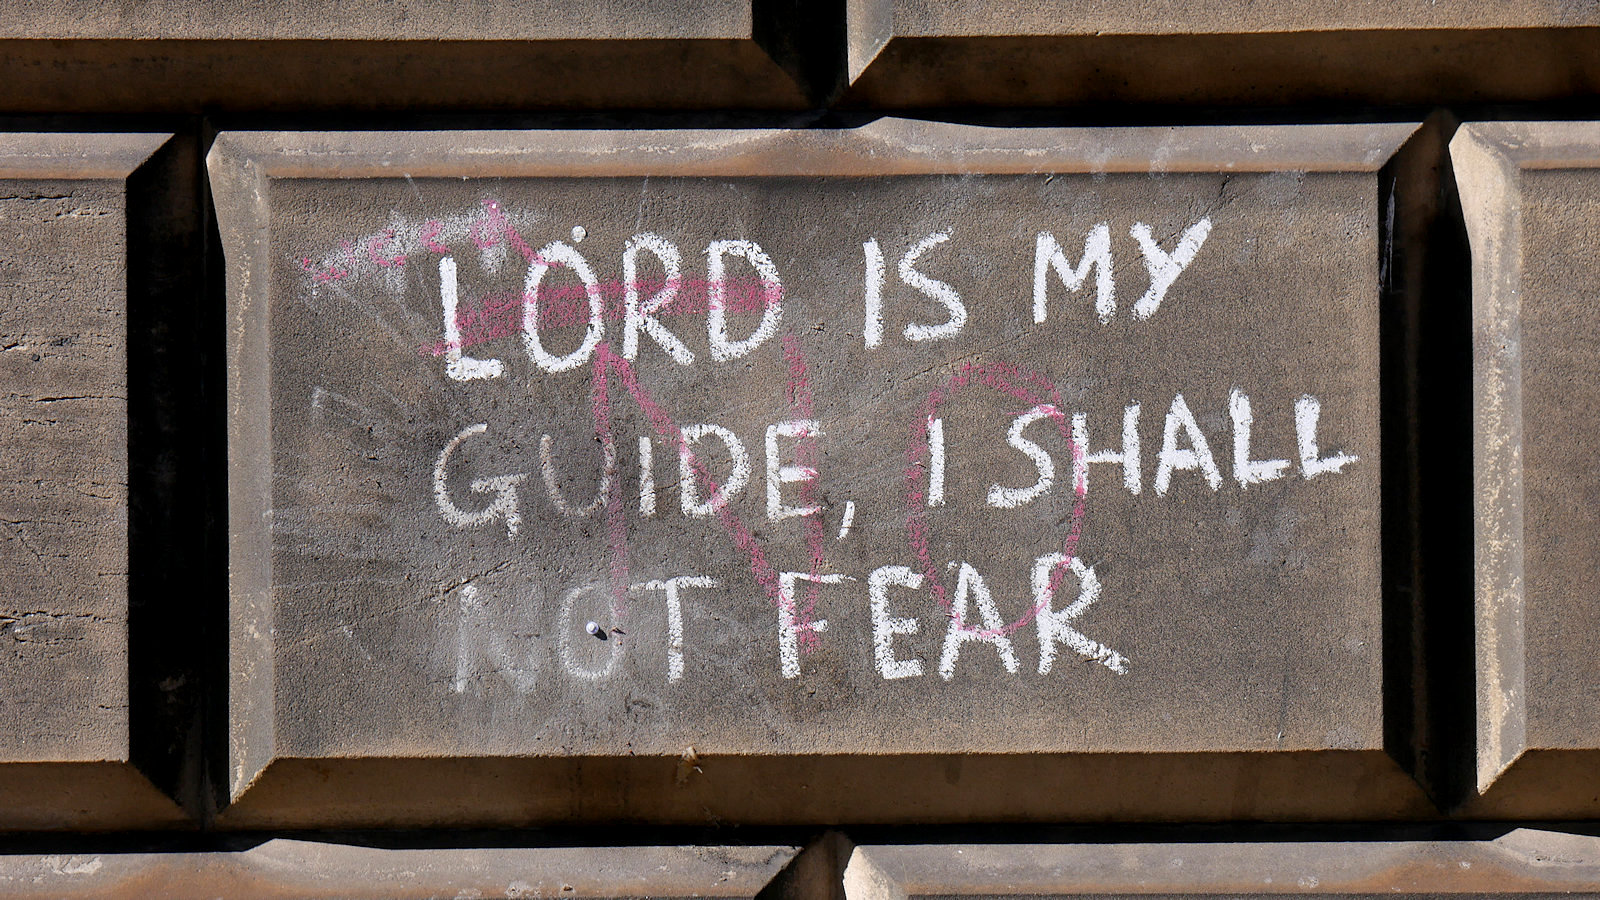 LORD IS MY
GUIDE, I SHALL
NOT FEAR
NO